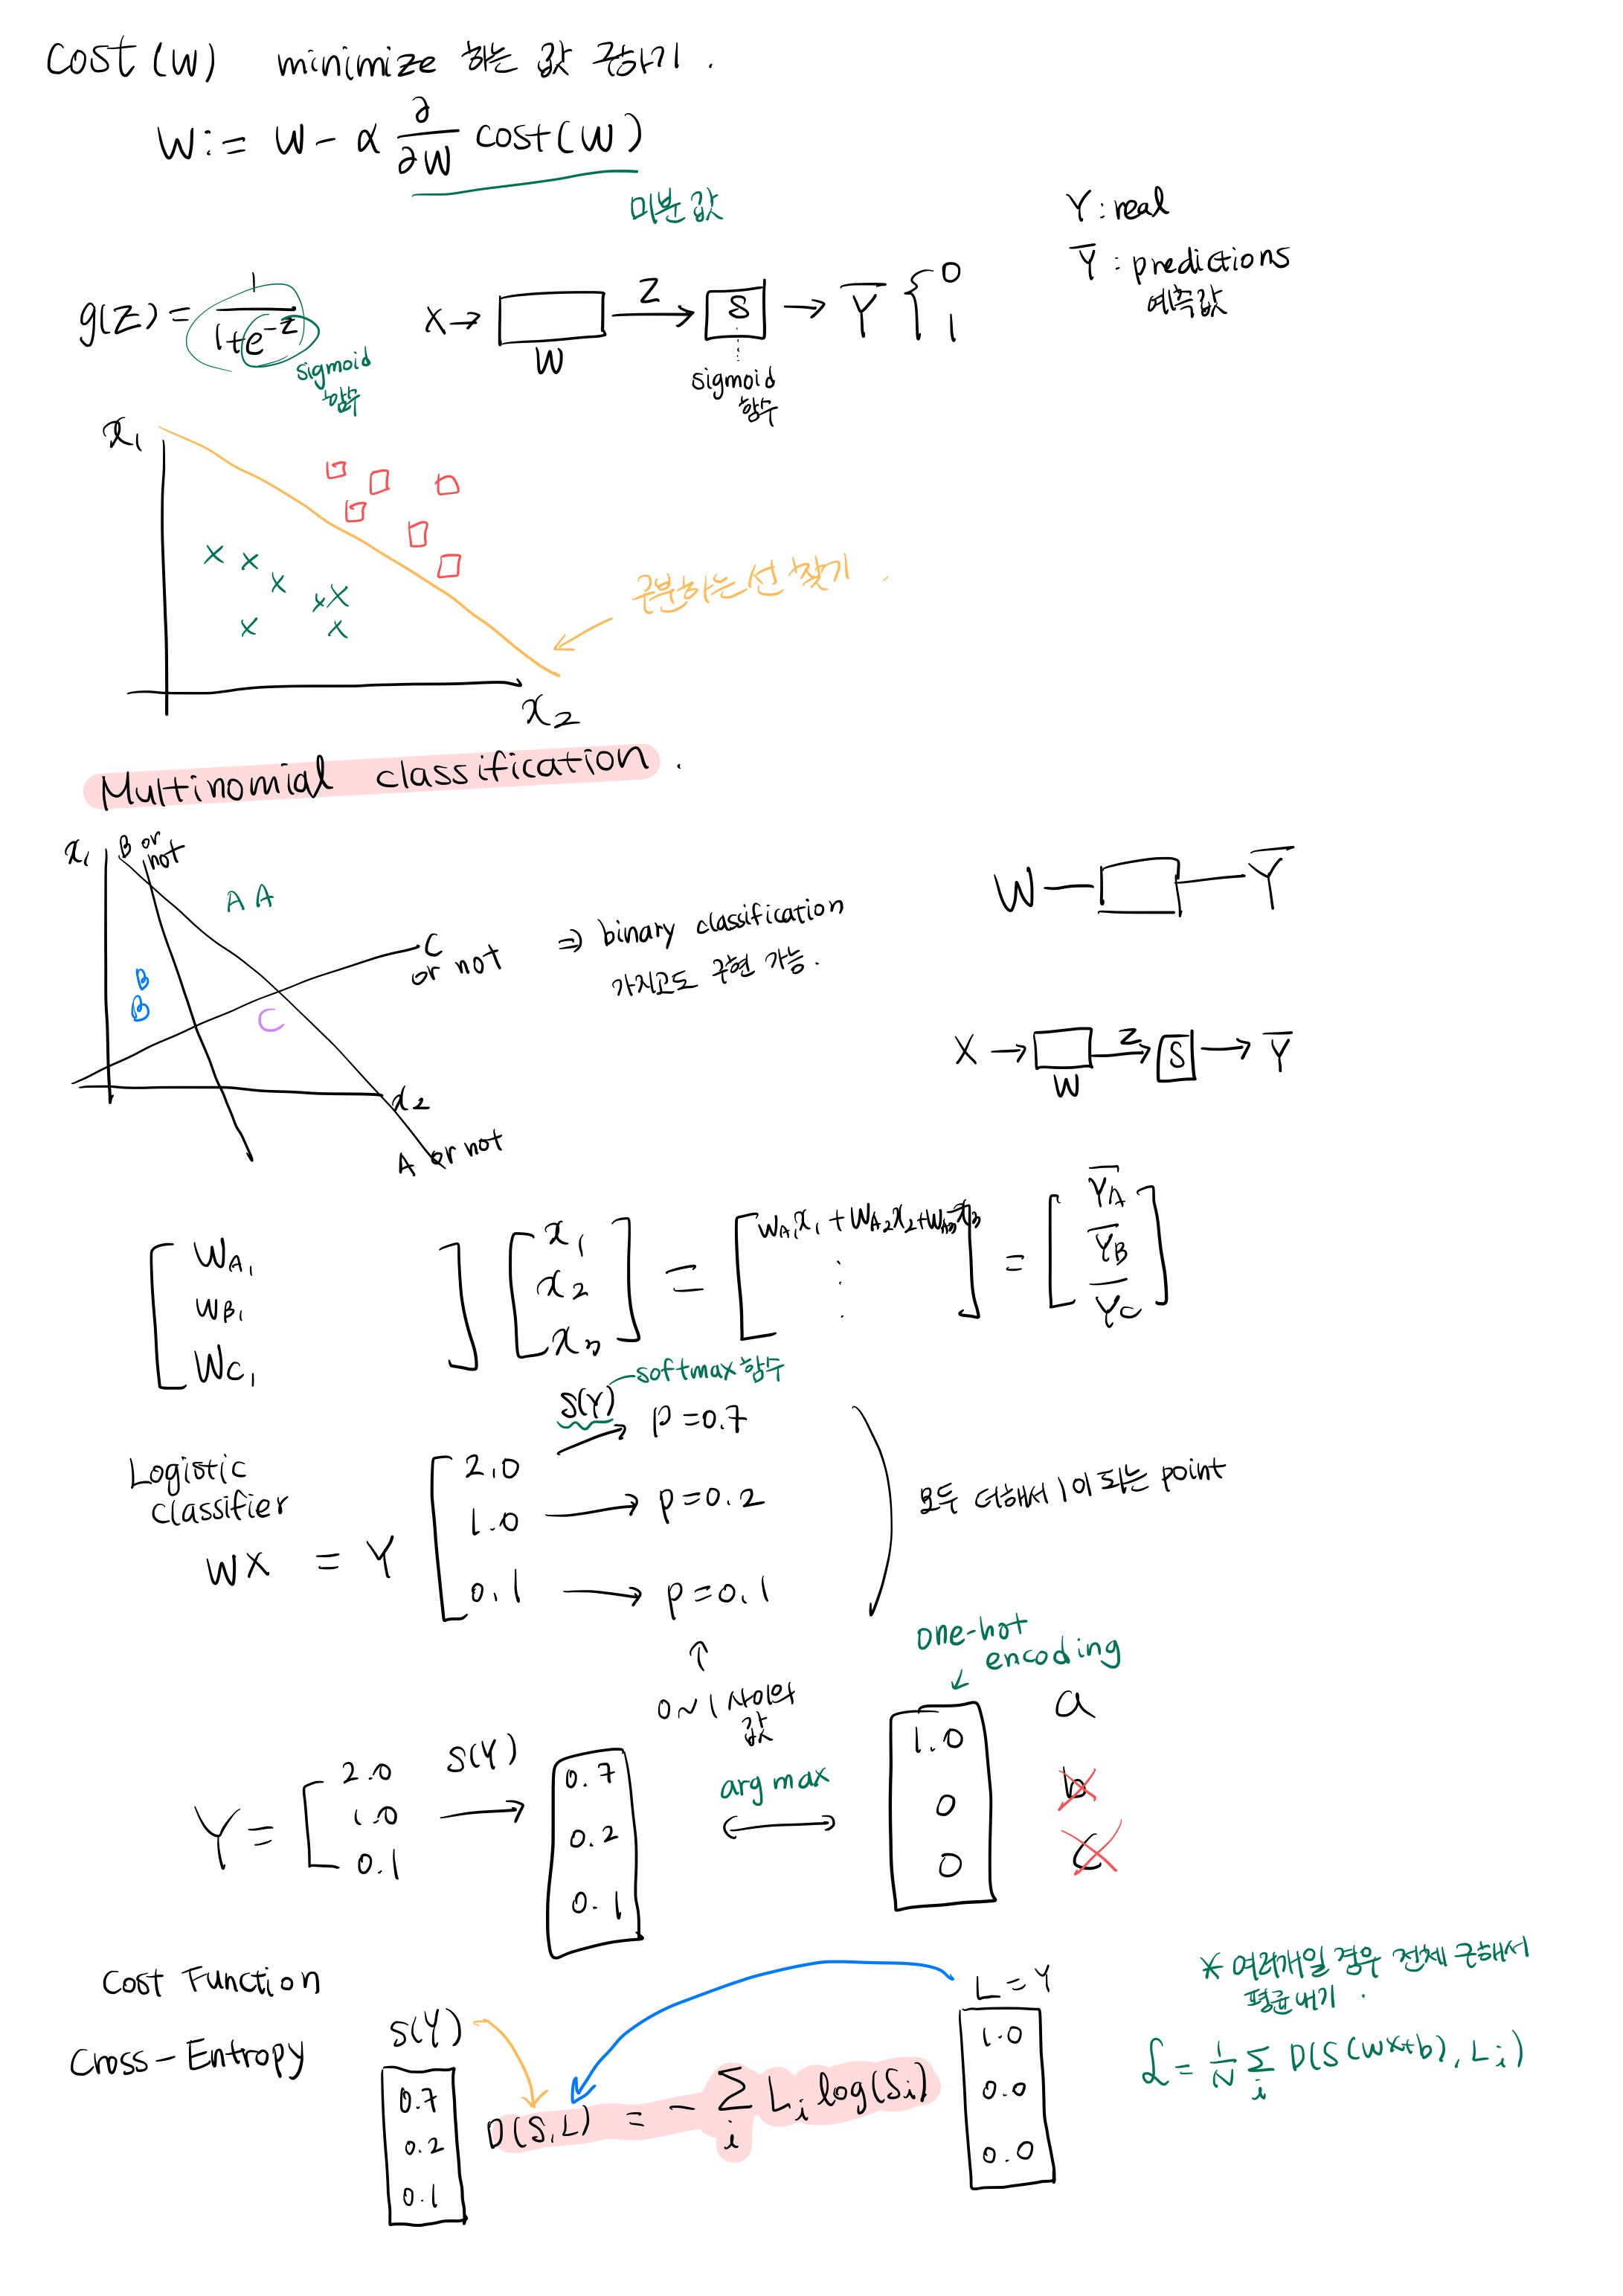 cost(W) minimize 하는 값 구하기.
W := W - α ∂/∂W cost(W)
미분값
Y : real
Y̅ : predictions
예측값
g(z) = 1/(1+e^-z)
sigmoid
함수
X → W Z → S → Y̅ { 0 1
sigmoid
함수
x₁
구분하는 선 찾기.
x₂
Multinomial classification.
x₁ B or not
A A
C or not
⇒ binary classification
가지고도 구현 가능.
B
B
C
x₂
A or not
W — Y̅
X → W Z → S → Y̅
[ W_A1 W_B1 W_C1 ] [ x₁ x₂ x₃ ] = [ W_A1x₁ + W_A2x₂ + W_A3x₃ ⋮ ] = [ Y̅_A Y̅_B Y̅_C ]
S(Y) softmax 함수
Logistic
classifier
WX = Y
2.0 → P = 0.7
1.0 → P = 0.2
0.1 → P = 0.1
모두 더해서 1이 되는 point
↑
0 ~ 1 사이의
값
one-hot
encoding
Y = [ 2.0 1.0 0.1 S(Y) → 0.7 0.2 0.1
arg max
↔
1.0 a
0 b
0 c
Cost Function
Cross-Entropy
S(Y)
0.7
0.2
0.1
D(S,L) = - Σ_i L_i log(S_i)
L = Y
1.0
0.0
0.0
* 여러개일 경우 전체 구해서
평균내기.
ℒ = 1/N Σ_i D(S(wx+b), L_i)